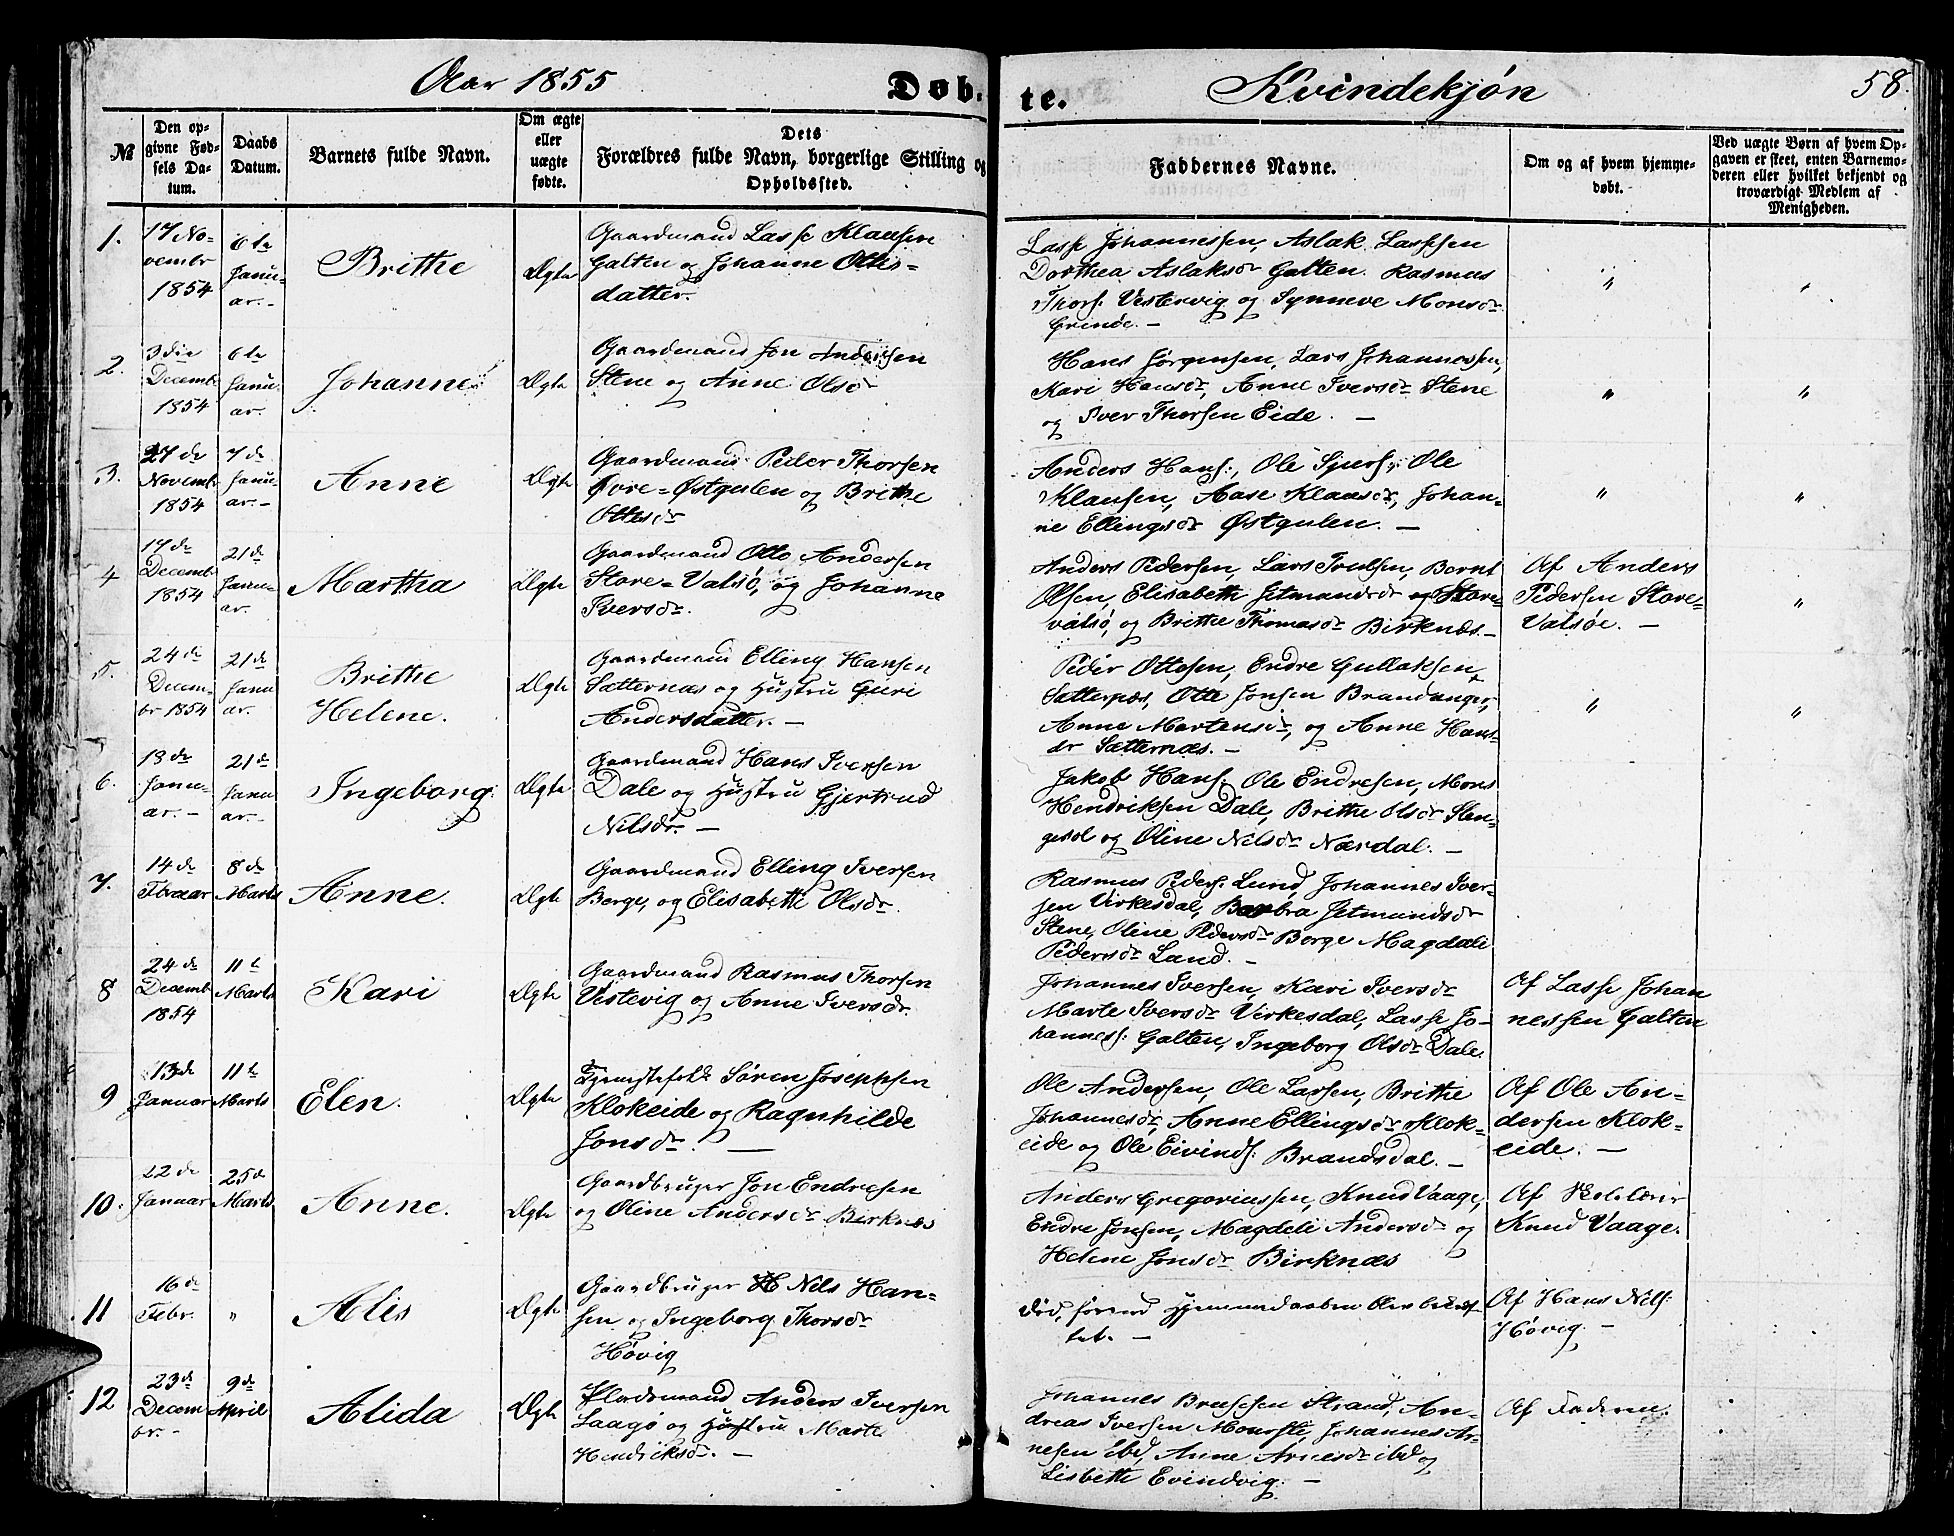 Aar 1855 Døb-
№
Den op-
givne Fød-
sels Da-
tum.
Daabs
Datum.
Barnets fulde Navn.
Om ægte
eller
uægte
fødte.
Dets
Forældres fulde Navn, borgerlige Stilling og
Opholdssted.
te. Kvindekjøn 58.
Faddernes Navne.
Om og af hvem hjemme-
døbt.
Ved uægte Børn af hvem Op-
gaven er skeet, enten Barnemo-
deren eller hvilket bekjendt og
troværdigt Medlem af
Menigheden.
1.
17 No-
vembr
1854
6te
Janu-
ar.-
Brithe
Ægte
Gaardmand Lasse Klausen
Galten og Johanne Ottis-
datter.
Lasse Johannessen, Aslak Lassesen
Dorthea Aslaksdr Galten. Rasmus
Thors: Vestervig og Synneve Monsdr
Grinøe. -
"
"
2.
3die
Decembr
1854
6te
Janu-
ar.
Johanne
Ægte
Gaardmand Jon Andersen
Stene og Anne Olsdr
Hans Jørgensen, Lars Johannessen,
Kari Hansdr, Anne Iversdr Stene
og Iver Thorsen Eide. -
"
"
3.
27de
Novembr
1854
7de
Janu-
ar.-
Anne
Ægte
Gaardmand Peder Thorsen
Øvre-Østgulen og Brithe
Ottesdr
Anders Hans:, Ole Ole
Klausen, Aase Klausdr, Johan-
ne Ellingsdr Østgulen. -
"
"
4
17de
Decembr
1854
21de
Janu-
ar.
Martha
Ægte
Gaardmand Otto Andersen
Store-Valsö, og Johanne
Iversdr.
Anders Pedersen, Lars Trulsen, Bernt
Olsen, Elisabeth Jetmundsdr og Store-
valsö, og Brithe Thomasdr Birknæs.-
Af Anders
Pedersen Store-
Valsöe. -
"
5.
24de
Decem-
br 1854
21de
Janu
ar.
Brithe
Helene.
Ægte
Gaardmand Elling Hansen
Sætternæs og Hustru Guri
Andersdatter. -
Peder Ottosen, Endre Gullaksen,
Sætternæs, Otte Jonsen Brandanger,
Anne Martensdr, og Anne Hans-
dr Sætternæs. -
"
"
6.
13de
Janu-
ar. -
21de
Janu
ar.-
Ingeborg
Ægte
Gaardmand Hans Iversen
Dale og Hustru Gjertrud
Nilsdr. -
Jakob Hans: Ole Endresen, Mons
Hendriksen Dale, Brithe Olsdr Sten-
gesol og Oline Nilsdr Nærdal. -
7.
14de
Febraar
8de
Marts
Anne.
Ægte
Gaardmand Elling Iversen
Berge, og Elisabeth Olsdr.
Rasmus Peders: Lund, Johannes Iver-
sen Virkesdal, Barbra Jetmundsdr
Stene, Oline Pedersdr Berge Magdali
Pedersdr Lund. -
8
24de
Decembr
1854
11te
Marts
Kari
Ægte
Gaardmand Rasmus Thorsen
Vestevig og Anne Iversdr.
Johannes Iversen, Kari Iversdr
Marte Iversdr Virkesdal, Lasse Jo-
hanness: Galten, Ingeborg Olsdr Dale.
Af Lasse Johan
nessen Galten
9
13de
Januar
11te
Marts
Elen.
Ægte
Tjenestefolk Søren Josephsen
Klokeide og Ragnhilde
Jonsdr. -
Ole Andersen, Ole Larsen, Brithe
Johannesdr, Anne Ellingsdr Klok-
eide og Ole Eivinds: Brandsdal. -
Af Ole An-
dersen Klok-
eide. -
10.
22de
Januar
25de
Marts
Anne.
Ægte
Gaardbruger Jon Endresen
og Oline Andersdr Birknæs
Anders Gregoriussen, Knud Vaage,
Endre Jonsen, Magdeli Andersdr og
Helene Jonsdr Birknæs
Af Skolelærer
Knud Vaage.
11
16de
Febr.
"
Alis
Ægte
Gaardbruger H Nils Han-
sen og Ingeborg Thorsdr
Høvig
Död, förend Hjemmedaaben blev bekræf
tet. -
Af Hans Nils:
Høvig. -
12
23de
Decem
br. -
9de
April
Alida
Ægte
Anders Iversen
Laagø og Hustru Marte
Hendriksdr. -
Johannes Brusesen Strand, An-
dreas Iversen Johannes Ar-
nesen ibd, Anne Arnesdr ibd og
Lisbeth Evindvig. -
Af Faderen.